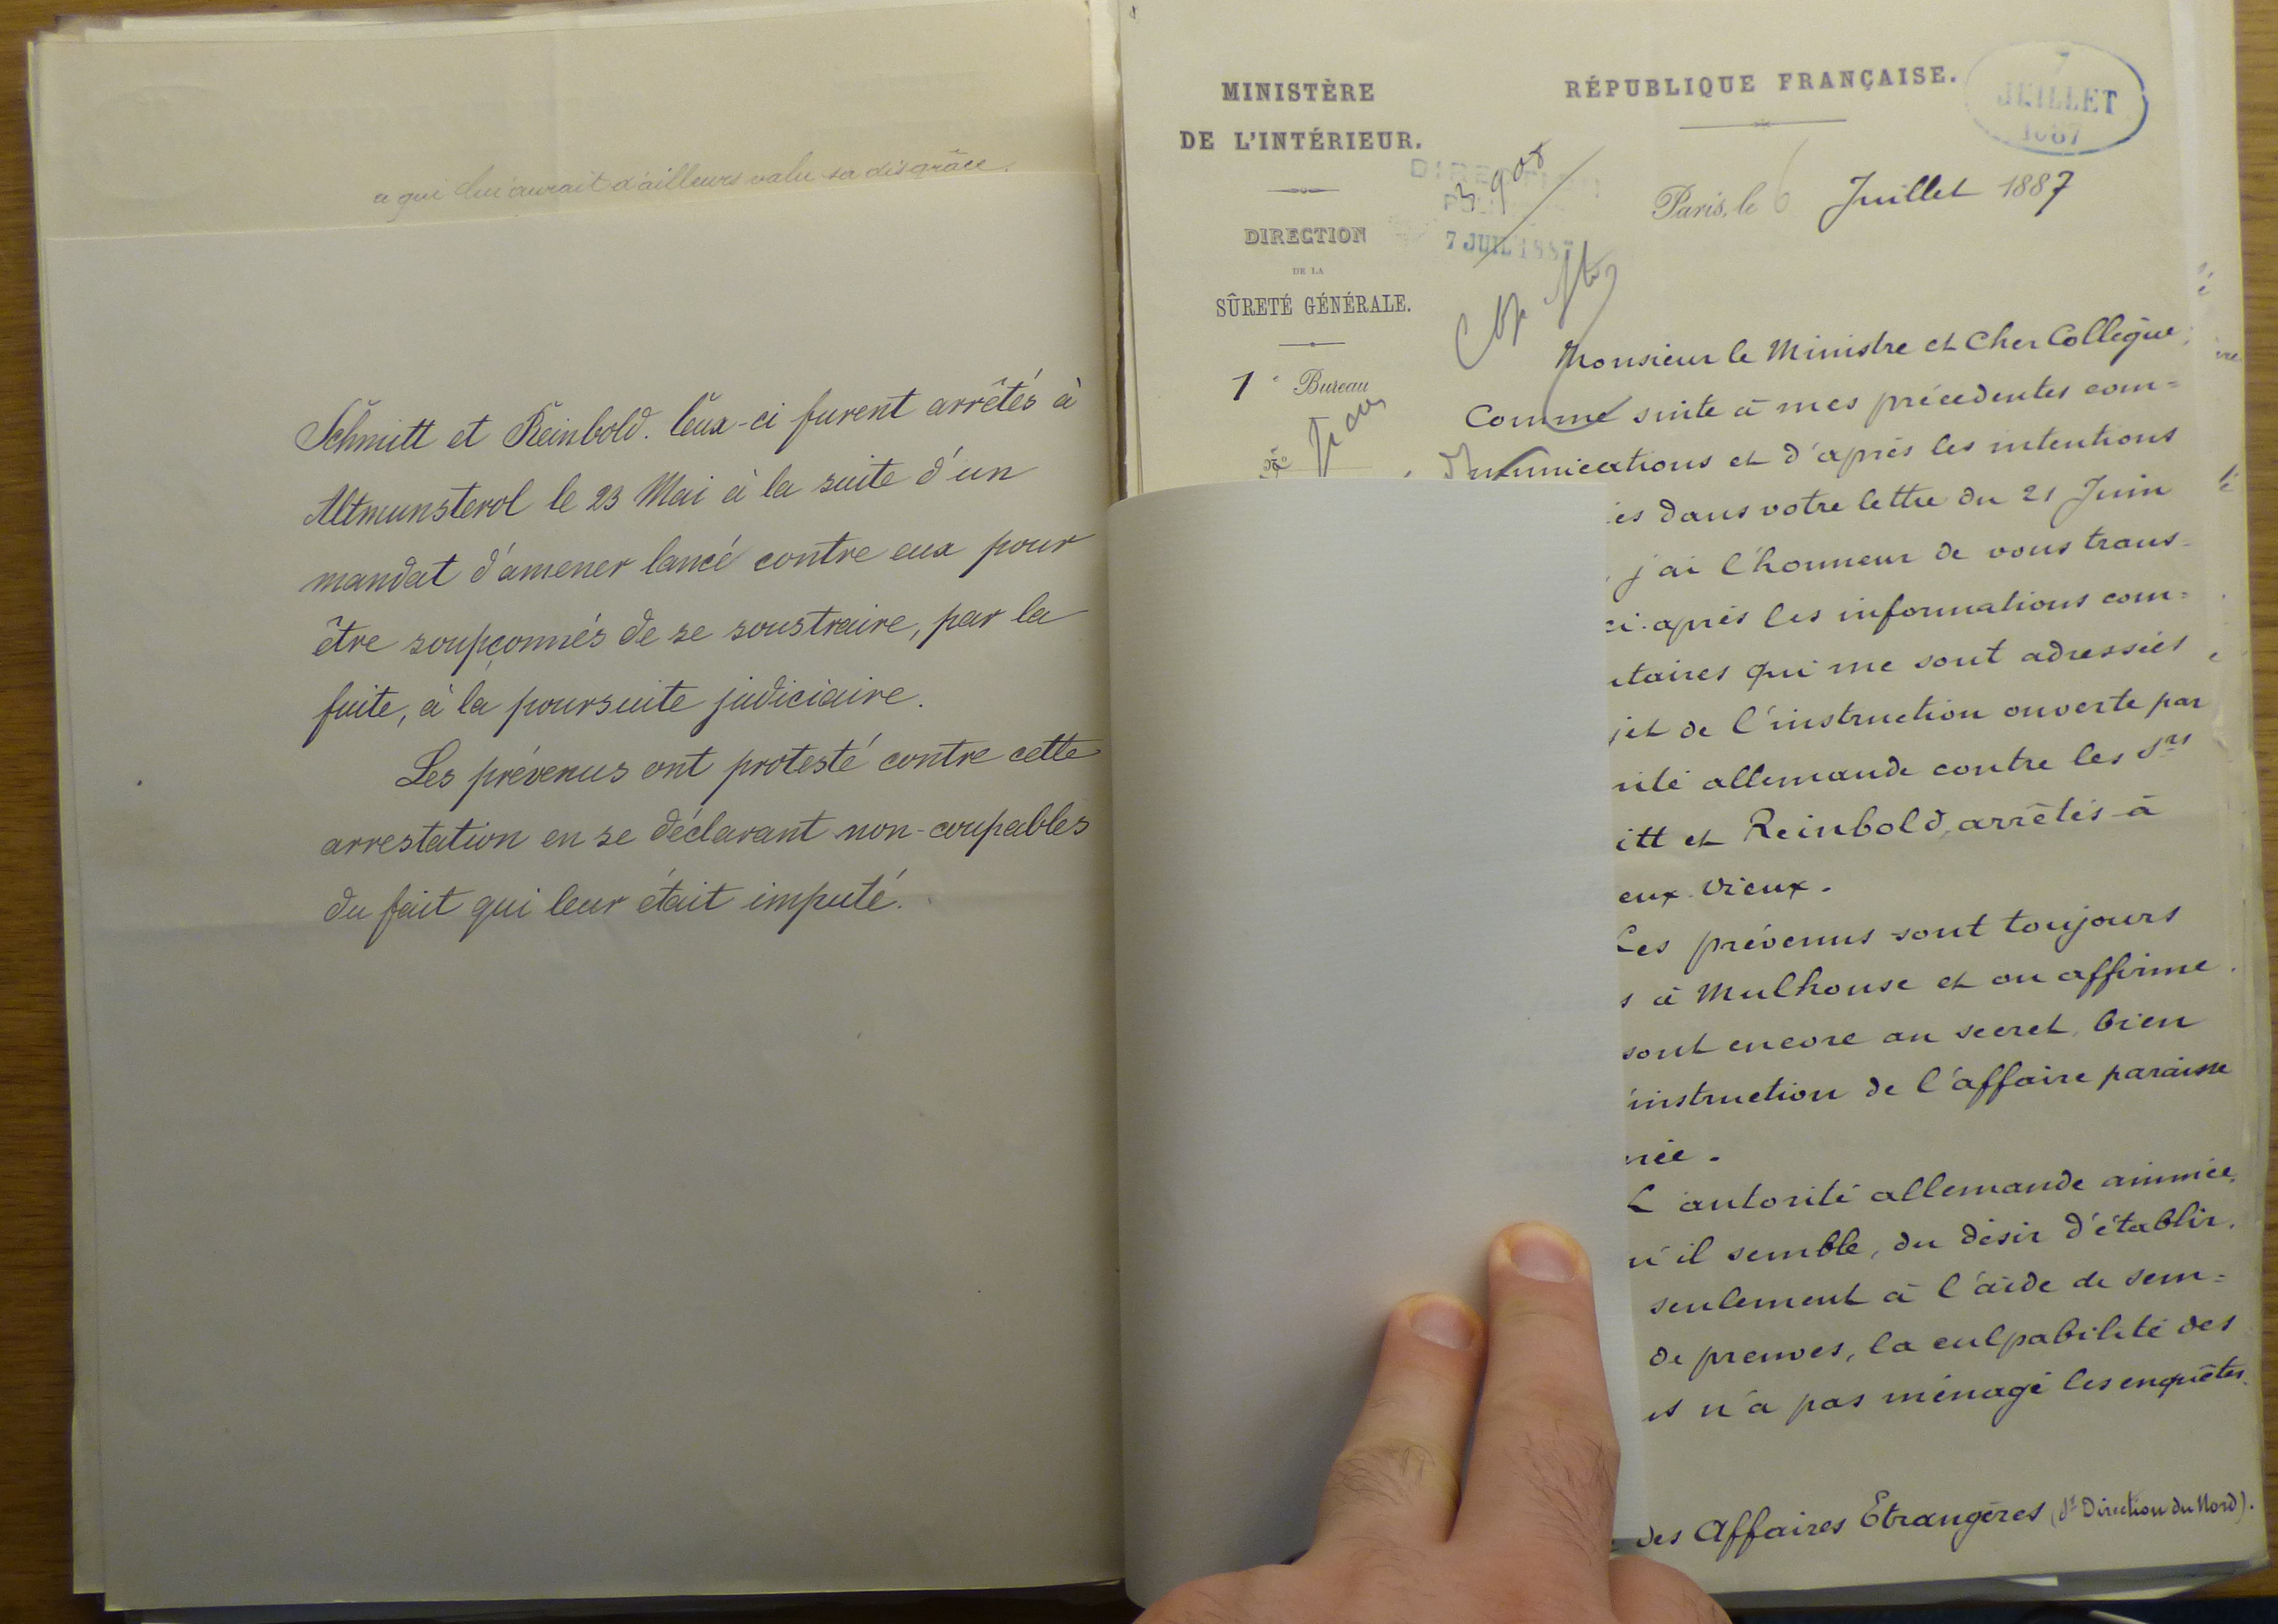 a qui lui aurait d'ailleurs valu sa disgrâce.
Schmitt et Reinbold. Ceux-ci furent arrêtés à
Altmunsterol le 23 Mai à la suite d'un
mandat d'amener lancé contre eux pour
être soupçonnés de se soustraire, par la
fuite, à la poursuite judiciaire.
Les prévenus ont protesté contre cette
arrestation en se déclarant non-coupables
du fait qui leur était imputé.
MINISTÈRE
DE L'INTÉRIEUR.
DIRECTION
DE LA
SÛRETÉ GÉNÉRALE.
1e Bureau
RÉPUBLIQUE FRANÇAISE.
7
JUILLET
1887
DIRECTION
7 JUIL 1887
Paris, le 6 Juillet 1887
Monsieur le Ministre et Cher Collègue,
Comme suite à mes précédentes com=
munications et d'après les intentions
es dans votre lettre du 21 Juin
, j'ai l'honneur de vous trans-
ci-après les informations com=
taires qui me sont adressées
jet de l'instruction ouverte par
rité allemande contre les Srs
itt et Reinbold, arrêtés à
eux Vieux.
Les prévenus sont toujours
s à Mulhouse et on affirme
sont encore au secret, bien
'instruction de l'affaire paraisse
née.
L'autorité allemande animée,
u'il semble, du désir d'établir,
seulement à l'aide de sem=
de preuves, la culpabilité des
n'a pas ménagé les enquêtes.
des Affaires Etrangères (Sr Direction du Nord).